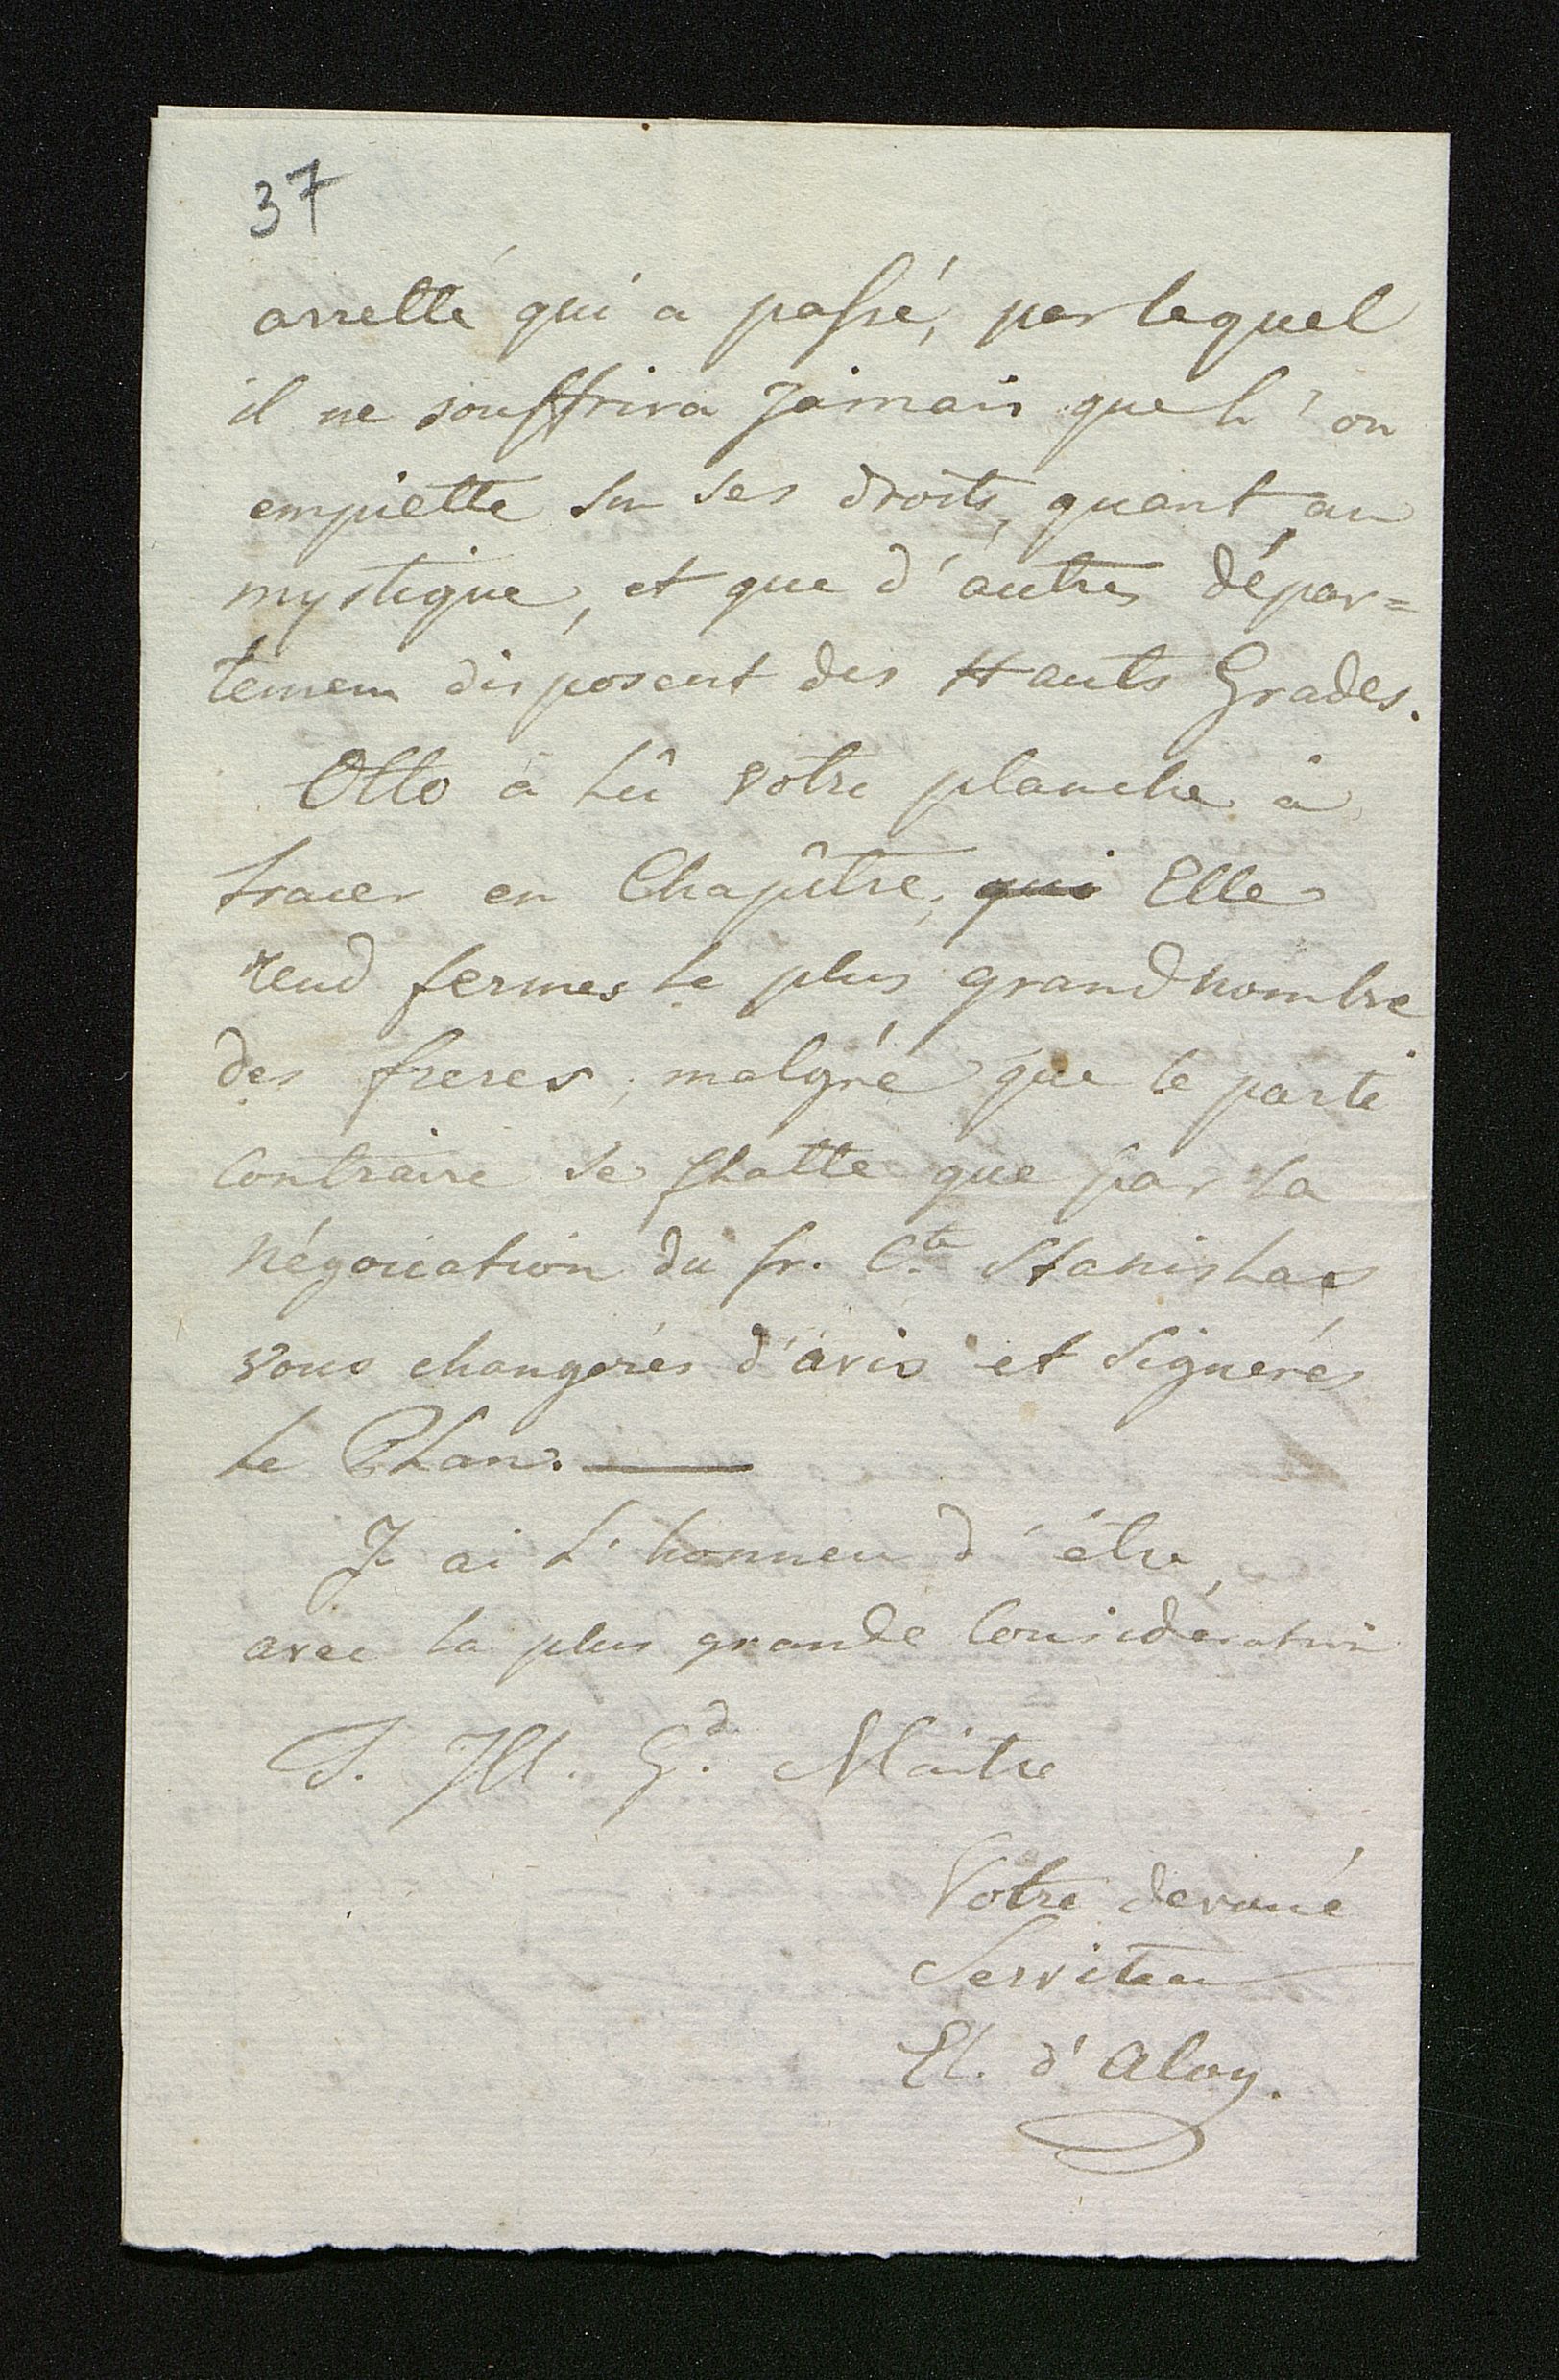 37
arretté qui a passé, par lequel
il ne souffrira Jamais que l'on
empiette sur ses droits, quant au
mystique, et que d'autres dépar=
temens disposent des Hauts Grades.
Otto à lû votre planche à
tracer en Chapître, qui Elle
rend fermes le plus grand nombre
des freres, malgré que le parti
Contraire se flatte que par la
Négociation du fr. Cte Stanislas
vous changerés d'avis et signerés
le Plan.
J'ai l'honneur d'être,
avec la plus grande Considération
S. Ill. Gd. Maitre
Votre devoué
Serviteur
El. d'Aloy.